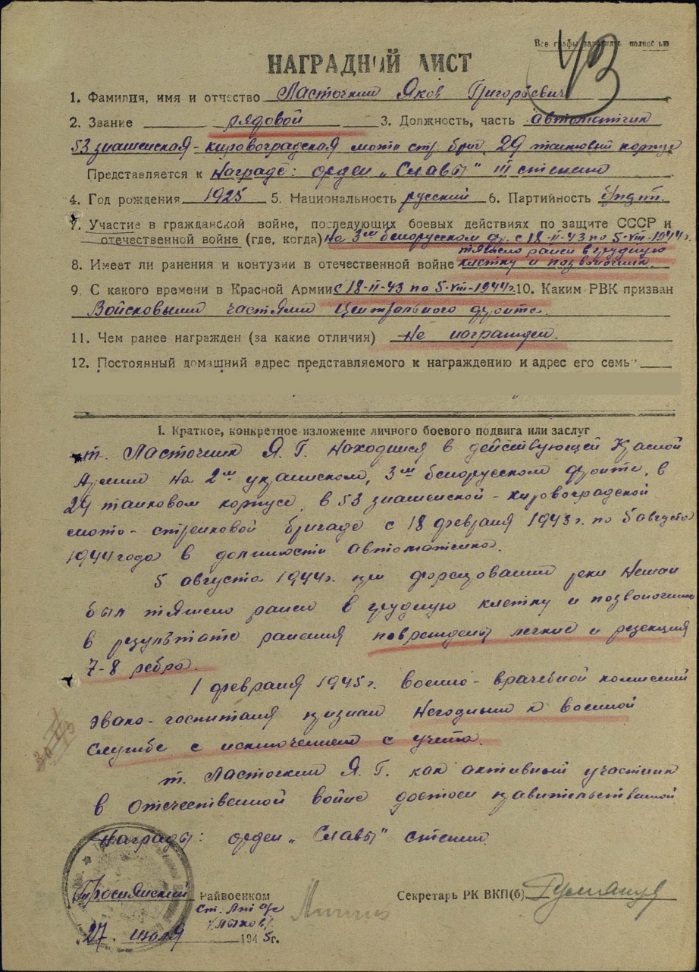 Все графы заполнять полностью
43
НАГРАДНОЙ ЛИСТ
1. Фамилия, имя и отчество Ласточкин Яков Григорьевич
2. Звание рядовой 3. Должность, часть автоматчик
53 знаменская-кировоградская мото стр. бриг. 29 танковый корпус
Представляется к Награде: орден „Славы" III степени
4. Год рождения 1925 5. Национальность русский 6. Партийность б/парт.
7. Участие в гражданской войне, последующих боевых действиях по защите СССР и
отечественной войне (где, когда) на 3ем белорусском фр. с 18-II-43 по 5-VIII-1944г.
тяжело ранен в грудную
8. Имеет ли ранения и контузии в отечественной войне клетку и позвоночник
9. С какого времени в Красной Армии с 18-II-43 по 5-VIII-1944г. 10. Каким РВК призван
Войсковыми частями Центрального фронта
11. Чем ранее награжден (за какие отличия) Не награжден.
12. Постоянный домашний адрес представляемого к награждению и адрес его семьи
I. Краткое, конкретное изложение личного боевого подвига или заслуг
т. Ласточкин Я. Г. находился в действующей Красной
Армии на 2ом украинском, 3ем белорусском фронте, в
29 танковом корпусе, в 53 знаменской-кировоградской
мото-стрелковой бригаде с 18 февраля 1943г. по 5 августа
1944 года в должности автоматчика.
5 августа 1944г. при форсировании реки Неман
был тяжело ранен в грудную клетку и позвоночник
в результате ранения повреждены легкие и резекция
7-8 ребра.
1 февраля 1945г. военно-врачебной комиссией
эвако-госпиталя признан Негодным к военной
службе с исключением с учета.
т. Ласточкин Я. Г. как активный участник
в отечественной войне достоин правительственной
Награды: орден „Славы" степени
Райвоенком
Секретарь РК ВКП(б)
27 июля 1945г.